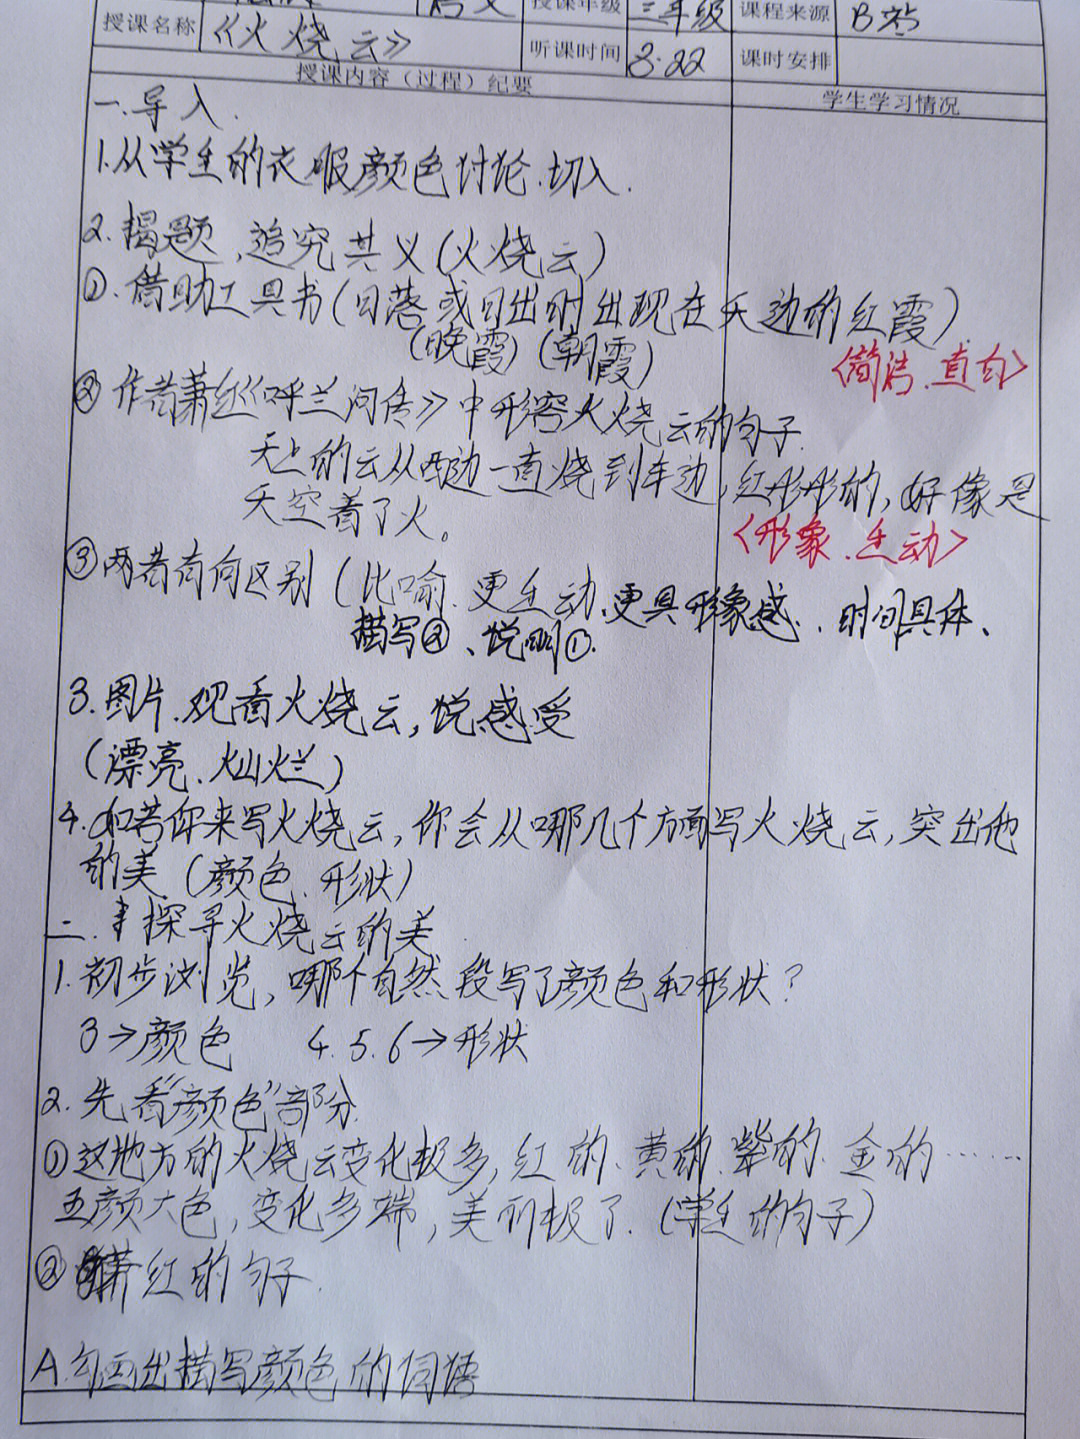 语文 授课年级 三年级 课程来源 B站
授课名称 《火烧云》 听课时间 3.22 课时安排
授课内容(过程)纪要 学生学习情况
一.导入.
1.从学生的衣服颜色讨论.切入.
2.揭题,追究其义(火烧云)
①.借助工具书(日落或日出时出现在天边的红霞)
(晚霞)(朝霞)
<简洁.直白>
②作者萧红《呼兰河传》中形容火烧云的句子.
天上的云从西边一直烧到东边,红彤彤的,好像是
天空着了火。
<形象.生动>
③两者有何区别(比喻.更生动、更具形象感.、时间具体、
描写②、说明①.
3.图片.观看火烧云,说感受
(漂亮.灿烂)
4.如若你来写火烧云,你会从哪几个方面写火烧云,突出他
的美(颜色.形状)
二.探寻火烧云的美
1.初步浏览,哪个自然段写了颜色和形状?
3→颜色 4.5.6→形状
2.先看“颜色”部分
①这地方的火烧云变化极多,红的、黄的.紫的.金的……
五颜六色,变化多端,美丽极了.(学生的句子)
②萧红的句子.
A.勾画出描写颜色的词语